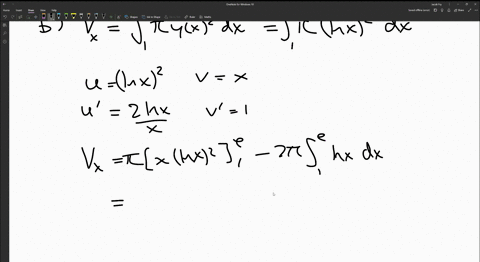 b) V_x = ∫_1 π y(x)² dx = ∫_1 π (ln x)² dx
u = (ln x)² v = x
u' = 2 ln x / x v' = 1
V_x = π [x (ln x)²]_1^e − 2π ∫_1^e ln x dx
=